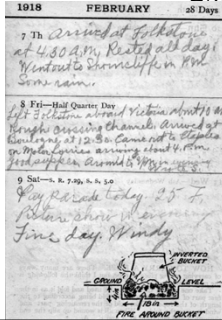 1918 FEBRUARY 28 Days
7 Th Arrived at Folkstone
at 4.30 A.M. Rested all day.
Went out to Shorncliff in P.M.
Some rain.
8 Fri—Half Quarter Day
Left Folkstone aboard Victoria about 10 A.M.
Rough crossing Channel. Arrived at
Boulogne at 12.30. Came out to Etaples
on Motor Lorries arriving about 4 P.M.
good supper. Around to Y.M. in evening
9 Sat—S. R. 7.29, S. S. 5.0
Pay parade today 25 F.
Picture show in evg.
Fine day. Windy
INVERTED
BUCKET
GROUND LEVEL
18 in
FIRE AROUND BUCKET